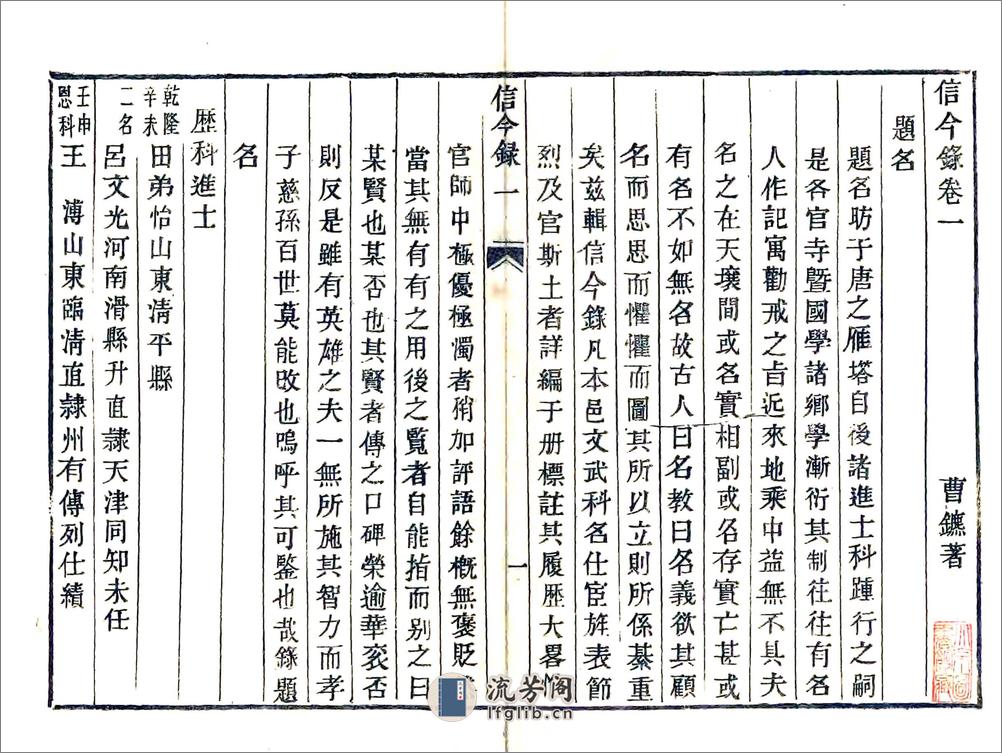 信今錄卷一
曹鑣著
題名
題名昉于唐之雁塔自後諸進士科踵行之嗣
是各官寺暨國學諸鄉學漸衍其制往往有名
人作記寓勸戒之旨近來地乘中益無不具夫
名之在天壤間或名實相副或名存實亡甚或
有名不如無名故古人曰名教曰名義欲其顧
名而思思而懼懼而圖其所以立則所係綦重
矣茲輯信今錄凡本邑文武科名仕宦旌表節
烈及官斯土者詳編于册標註其履歷大畧
信今錄 一
一
官師中極優極濁者稍加評語餘概無褒貶
當其無有有之用後之覽者自能指而别之曰
某賢也某否也其賢者傳之口碑榮逾華衮否
則反是雖有英雄之夫一無所施其智力而孝
子慈孫百世莫能改也嗚呼其可鑒也哉錄題
名
歷科進士
乾隆辛未二名
田弟怡山東清平縣
呂文光河南滑縣升直隸天津同知未任
壬申恩科
王 溥山東臨清直隸州有傳列仕績
流芳阁
lfglib.cn